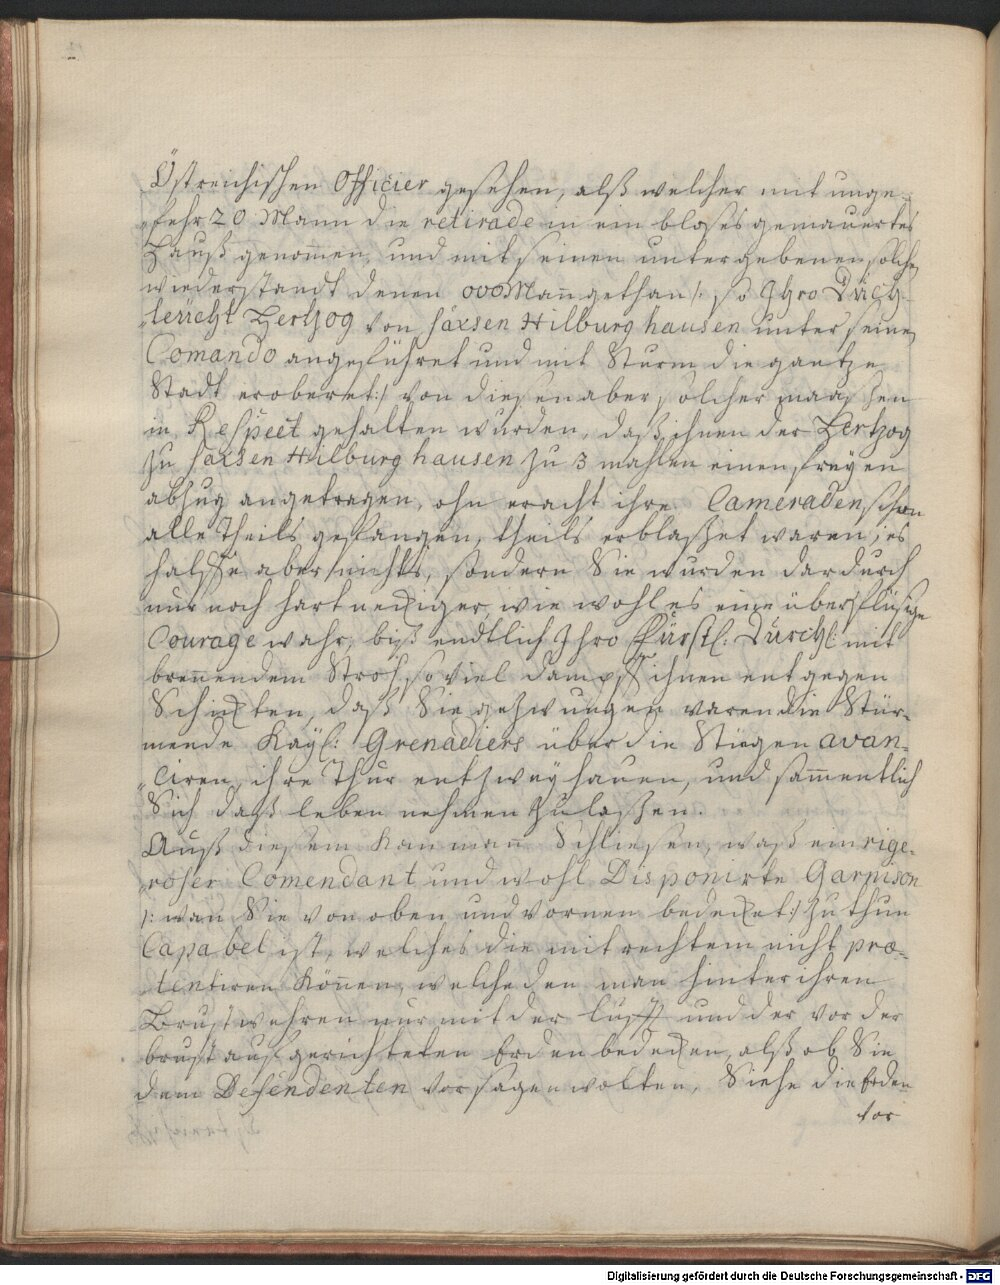 Östreichischen Officier gesehen, alß welcher mit unge-
„fehr 20 Mann die retirade in ein bloses gemauertes
Hauß genom̄en, und mit seinen untergebenen solchen
wiederstandt denen 000 Man̄ gethan /: so Ihro Dürch-
„leücht Hertzog von Saxsen Hilburghausen unter seinem
Comando angeführet und mit Sturm die gantze
Stadt eroberet :/ von diesen aber solcher maassen
in Respect gehalten wurden, daß ihnen der Hertzog
zu Saxsen Hilburghausen zu 3 mahlen einen freyen
abzug angetragen, ohn eracht ihre Cameraden schon
alle theils gefangen, theils erblaßet waren; es
halffe aber nichts, sondern Sie wurden dardurch
nur noch hartneckiger, wie wohl es eine überflüßige
Courage wahr, biß endtlich Ihro Fürstl: Dürchl: mit
brennendem Stroh, so viel dampff ihnen entgegen
Schickten, daß Sie gezwungen waren die Stür-
mende Kayl: Grenadiers über die Stiegen avan-
„ciren, ihre Thür entzwey hauen, und sam̄entlich
Sich daß leben nehmen zu laßen.
Auß diesem Kan man Schliesen, waß ein rige-
„roser Comendant und wohl Disponirte Garnison
/: wan Sie von oben und vornen bedecket :/ zu thun
Capabel ist, welches die mit rechtem nicht præ-
„tentiren Kön̄en, welche den man hinter ihren
Brustwehren nur mit der lufft und der vor der
brust aufgerichteten Erden bedecken, alß ob Sie
dem Defendenten vorsagen wolten, Siehe die Erden
vor
Digitalisierung gefördert durch die Deutsche Forschungsgemeinschaft - DFG